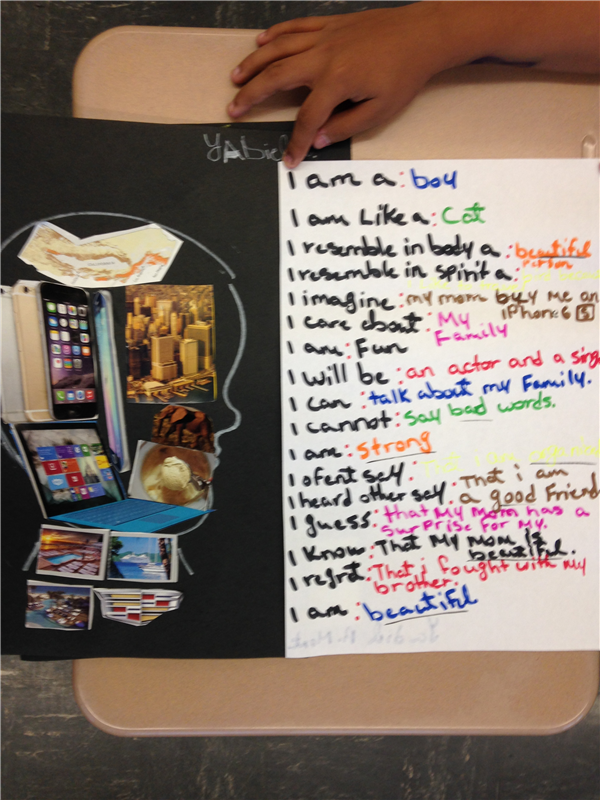 I am a: boy
I am Like a: Cat
I resemble in body a: beautiful
person
I resemble in spirit a:
I imagine: my mom buy me an
iPhone 6 S
I care about: My
Family
I am: Fun
I will be: an actor and a sing
I can: talk about my Family.
I cannot: Say bad words.
I am: Strong
I ofent say: That i am
I heard other say: That i am
a good Friend
I guess: that My Mom has a
surprise for My.
I Know: That My Mom is
beautiful.
I regret: That i fought with My
brother.
I am: beautiful